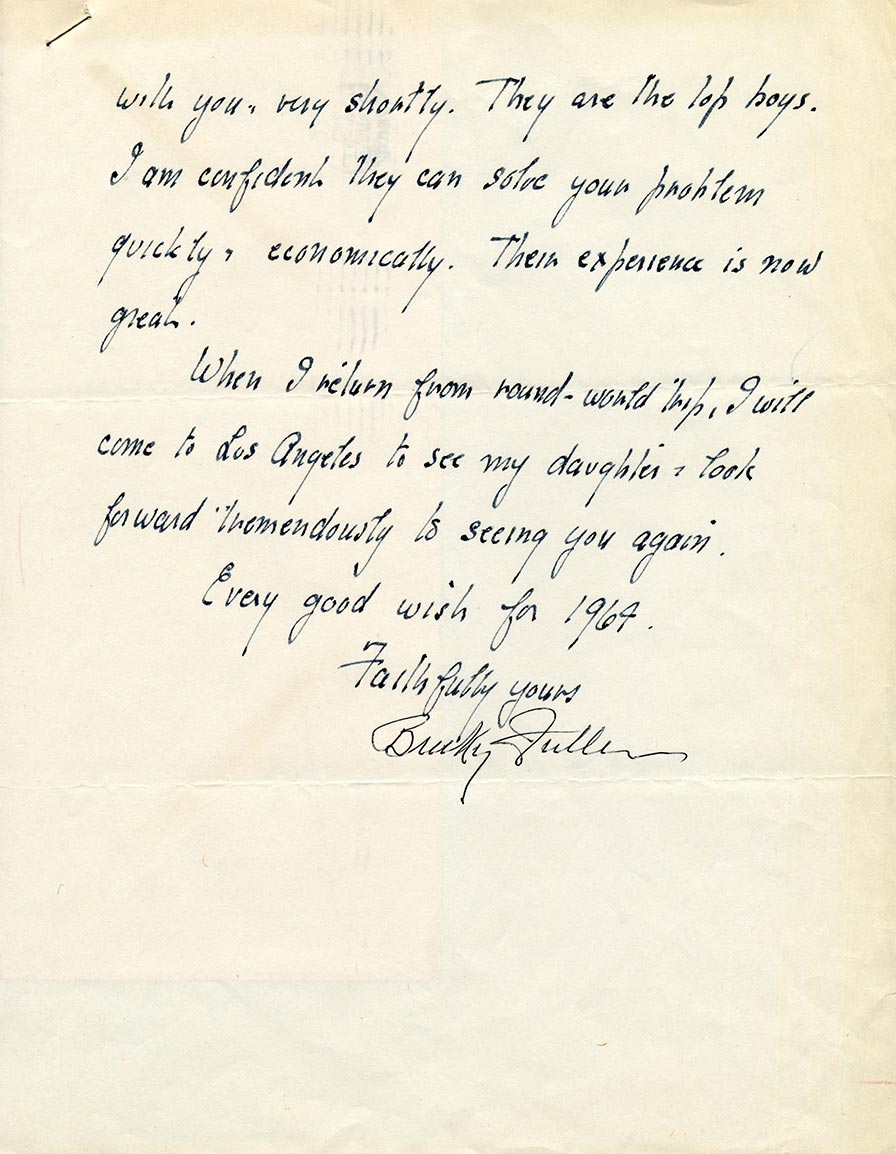 with you, very shortly. They are the top boys.
I am confident they can solve your problem
quickly, economically. Their experience is now
great.
When I return from round-world trip, I will
come to Los Angeles to see my daughter - look
forward tremendously to seeing you again.
Every good wish for 1964.
Faithfully yours
Bucky Fuller